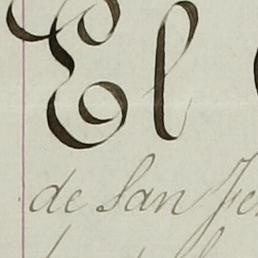 El
de San Fer